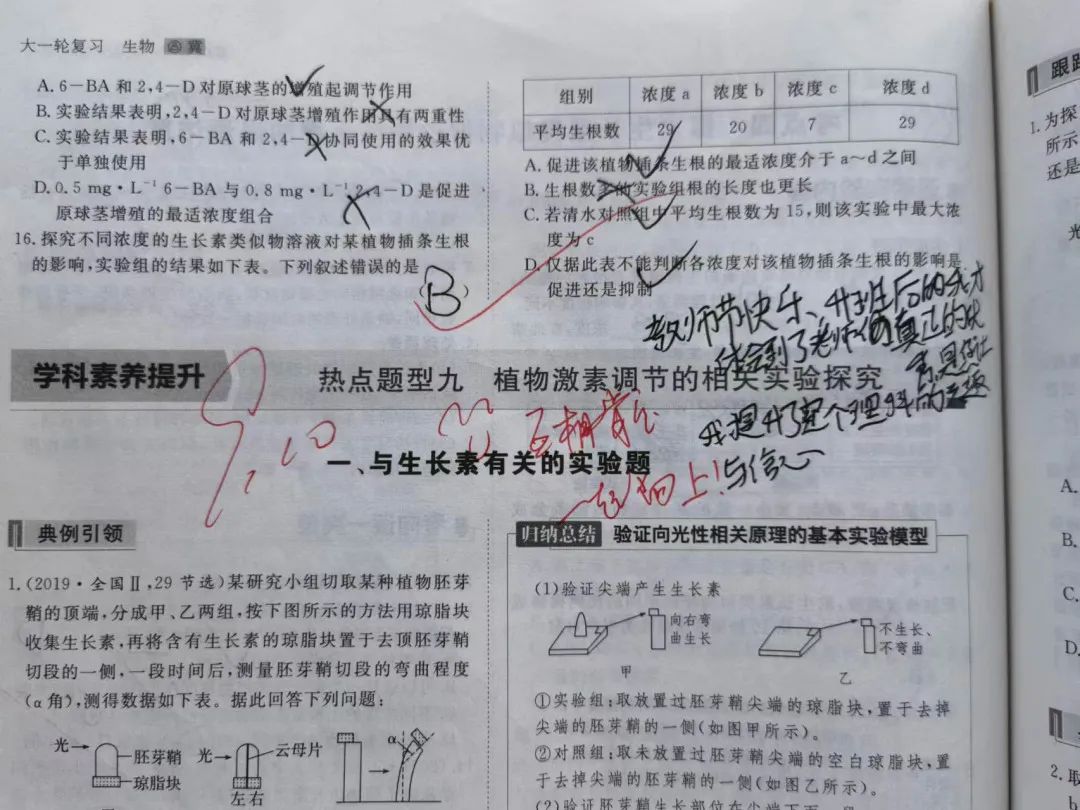 大一轮复习 生物 冀
A.6-BA 和 2,4-D 对原球茎的增殖起调节作用
B.实验结果表明,2,4-D 对原球茎增殖作用具有两重性
C.实验结果表明,6-BA 和 2,4-D 协同使用的效果优
于单独使用
D.0.5 mg·L⁻¹ 6-BA 与 0.8 mg·L⁻¹ 2,4-D 是促进
原球茎增殖的最适浓度组合
16.探究不同浓度的生长素类似物溶液对某植物插条生根
的影响,实验组的结果如下表。下列叙述错误的是
( B )
组别 浓度 a 浓度 b 浓度 c 浓度 d
平均生根数 29 20 7 29
A.促进该植物插条生根的最适浓度介于 a~d 之间
B.生根数多的实验组根的长度也更长
C.若清水对照组中平均生根数为 15,则该实验中最大浓
度为 c
D.仅据此表不能判断各浓度对该植物插条生根的影响是
促进还是抑制
教师节快乐、开学后的我才
体会到了老师们真正的优
我提升了整个理科的兴趣
与信心
互相赏识
一起向上!
学科素养提升
热点题型九 植物激素调节的相关实验探究
一、与生长素有关的实验题
典例引领
1.(2019·全国Ⅱ,29 节选)某研究小组切取某种植物胚芽
鞘的顶端,分成甲、乙两组,按下图所示的方法用琼脂块
收集生长素,再将含有生长素的琼脂块置于去顶胚芽鞘
切段的一侧,一段时间后,测量胚芽鞘切段的弯曲程度
(α 角),测得数据如下表。据此回答下列问题:
光 胚芽鞘 光 云母片 α
琼脂块
左 右
归纳总结 验证向光性相关原理的基本实验模型
(1)验证尖端产生生长素
向右弯
曲生长
不生长、
不弯曲
甲 乙
①实验组:取放置过胚芽鞘尖端的琼脂块,置于去掉
尖端的胚芽鞘的一侧(如图甲所示)。
②对照组:取未放置过胚芽鞘尖端的空白琼脂块,置
于去掉尖端的胚芽鞘的一侧(如图乙所示)。
跟踪
1.为探
所示
还是
光
A.
B.
C.
D.
2.取